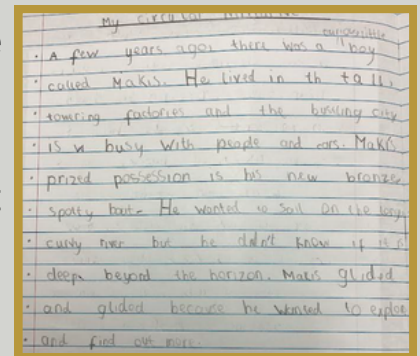 My circular narrative
A few years ago, there was a boy
called Makis. He lived in th tall,
towring factories and the busling city
is busy with people and cars. Makis
prized possession is his new bronze,
spotty boat. He wanted to sail on the long,
curvy river but he didn't know if it is
deep beyond the horizon. Makis glided
and glided because he wanted to explor
and find out more.